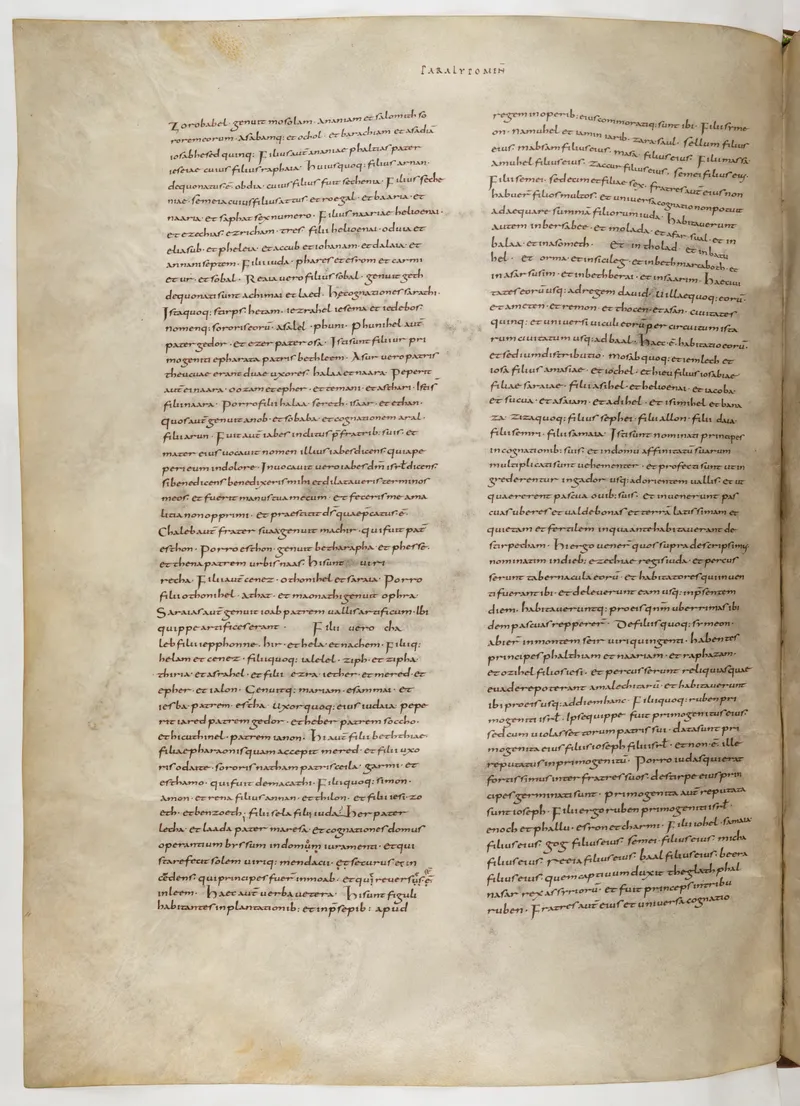 PARALYPOMIN̄
Zorobabel · genuit mosolam · ananiam et salomith so
roremeorum · Asabamq; et ochol · et barachiam et asadiā
iosabhesed quinq; · Filius aūt ananiae phaltias pater
ieseiae cuius filius raphaia · huiusquoq; filius arnan ·
dequo natus ē · obdia cuius filius fuit sechenia · Filius seche
niae · semeia cuius filii · et roegal · et baaria · et
naaria · et saphat sex numero · Filius naariae helioenai ·
et ezechias · ezricham · tres · filii helioenai · oduia et
eliasub · et pheleia · et accub et iohanam · et dalaia · et
annani septem · Filii iuda · phares et esrom et carmi
et ur · et sobal · Reaia uero filius sobal · genuit geth
dequo nati sunt achimai et laed · hae cognationes sarathi ·
Istaquoq; stirps · hetam · iezrahel iesema et iedebos ·
nomenq; sororis eorū · asalel · phuni · phunihel aūt
pater gedor · et ezer pater osa · Isti sunt filii ur pri
mogeniti ephrata patris bethleem · Asur uero patris
thecuae · erant duae uxores · halaa et naara · Peperit
aūt ei naara · oozam et epher · et temani · et asthari · Isti s̄
filii naara · Porro filii halaa · sereth · isaar · et ethan ·
quos aūt genuit anob · et sobaba · et cognationem aral ·
filii arun · Fuit aūt iabes inclitus p̄ fratrib; suis · et
mater eius uocauit nomen illius iabes dicens quia pe
peri eum in dolore · Inuocauit uero iabes dm̄ isrl̄ dicens ·
si benedicens benedixeris mihi et dilataueris terminos
meos · et fuerit manus tua mecum · et feceris me a ma
litia non opprimi · et praestitit ds̄ quae p̄catus ē ·
Chaleb aūt frater sua genuit machir · qui fuit pat̄
esthon · Porro esthon · genuit betharapha · et phesse ·
et thena patrem urbis naas · hi sunt uiri
recha · Filii aūt cenez · othonihel et saraia · Porro
filii othonihel · athat · et maonathi genuit ophra ·
Saraias aūt genuit ioab patrem uallis artificum · Ibi
quippe artifices erant · Filii uero cha
leb filii iepphonne · hir · et hela · et nachem · Filiiq;
helam et cenez · filii quoq; ialelel · ziph · et zipha ·
thiria · et asrahel · et filii · ezra · iether · et mered · et
epher · et ialon · Genuitq; mariam · et sammai · et
iesba · patrem · estha · Uxor quoq; eius iudaia · pepe
rit iared patrem gedor · et heber patrem soccho ·
et hicuthihel · patrem ianon · hi aūt filii bethchiae ·
filiae pharaonis quam accepit mered · et filii uxo
ris odaiae · sororis natham patris ceila · garmi · et
esthamo · qui fuit de macathi · Filii quoq; simon ·
Amon · et rena filius annan · et thilon · et filii iesi · zo
eth · et benzoeth ; filii sela filii iuda · her pater
lecha · et laada pater maresa · et cognationes domus
operantium byssum in domum iuramenti · et qui
stare fecit solem uiriq; mendacii · et securus et in
cēdens · qui principes fuer̄ in moab · et qui reuersi s̄
in leem · haec aūt uerba uetera · hi sunt figuli
habitantes in plantationib; et in p̄sepib; apud
regem in operib; eius commoratiq; sunt ibi · Filii syme
on · namuhel et iamin iarib · zara saul · sellum filius
eius · mabsam filius eius · masa · filius eius · Filii masa ·
amuhel filius eius · zaccur filius eius · semei filius eius ·
Filii semei · sedecim et filiae sex · fratres aūt eius non
habuer̄ filios multos · et uniuersa cognatio non potuit
adaequare summā filiorum iuda · habitauerunt
autem in bersabee · et molada · et asar sual · et in
balaa · et in asomech · et in tholad · et in batu
hel · et orma · et in siceleg · et in bethmarcaboth · et
in asarsusim · et in bethberai · et in saarim · hae ciui
tates eorū · ad regem dauid · Uillaequoq; eorū ·
etam et en · et remon · et thocen · et asan · ciuitates
quinq; · et uniuersi uiculi eorū per circuitum ista
rum ciuitatum usq; ad baal · haec ē habitatio eorū ·
et sedium distributio · mosab quoq; et iemlech et
iosa filius amasiae · et iohel · et hieu filius iosabiae ·
filiae saraiae · filii asihel · et helioenai · et iacoba ·
et sucua · et asaiam · et adihel · et ismihel et bana
za · Ziza quoq; filius sephei · filii allon · filii daia ·
filii semri · filii samaia · Isti sunt nominati principes
in cognationib; suis · et in domu affinitatū suarum
multiplicati sunt uehementer · et profecti sunt ut in
grederentur in gador usq; ad orientem uallis · et ut
quaererent pascua ouib; suis · et inuenerunt pas
cuas uberes · et ualde bonas · et terrā latissimam et
quietam et fertilem in qua ante habitauerant de
stirpe cham · hi ergo uener̄ quos supra descripsim;
nominatim in dieb; ezechiae regis iuda · et percus
serunt tabernacula eorū · et habitatores qui inuen
ti fuerant ibi · et deleuerunt eam usq; in p̄sentem
diem · habitaueruntq; pro eis qm̄ uberrimas ibi
dem pascuas repperer̄ · De filiis quoq; symeon ·
abier̄ in montem seir uiri quingenti · habentes
principes phalthiam et naariam · et raphaiam ·
et ozihel filios iesi · et percusserunt reliquias quae
euadere poterant amalechitarū · et habitauerunt
ibi pro eis usq; ad diem hanc · Filii quoq; ruben pri
mogeniti isrl̄ · Ipse quippe fuit primogenitus eius ·
sed cum uiolasset torum patris sui · data sunt pri
mogenita eius filiis ioseph filii isrl̄ · et non ē ille
reputatus in primogenitū · Porro iudas qui erat
fortissimus inter fratres suos · de stirpe eius prin
cipes germinati sunt · primogenita aūt reputata
sunt ioseph · Filii ergo ruben primogeniti isrl̄ ·
enoch et phallu · esron et charmi · Filii iohel · samaia
filius eius · gog filius eius · semei filius eius · micha
filius eius · receia filius eius · baal filius eius · beera
filius eius · quem captiuum duxit theglathphal
nasar · rex assiriorū · et fuit princeps in tribu
ruben · Fratres aūt eius et uniuersa cognatio